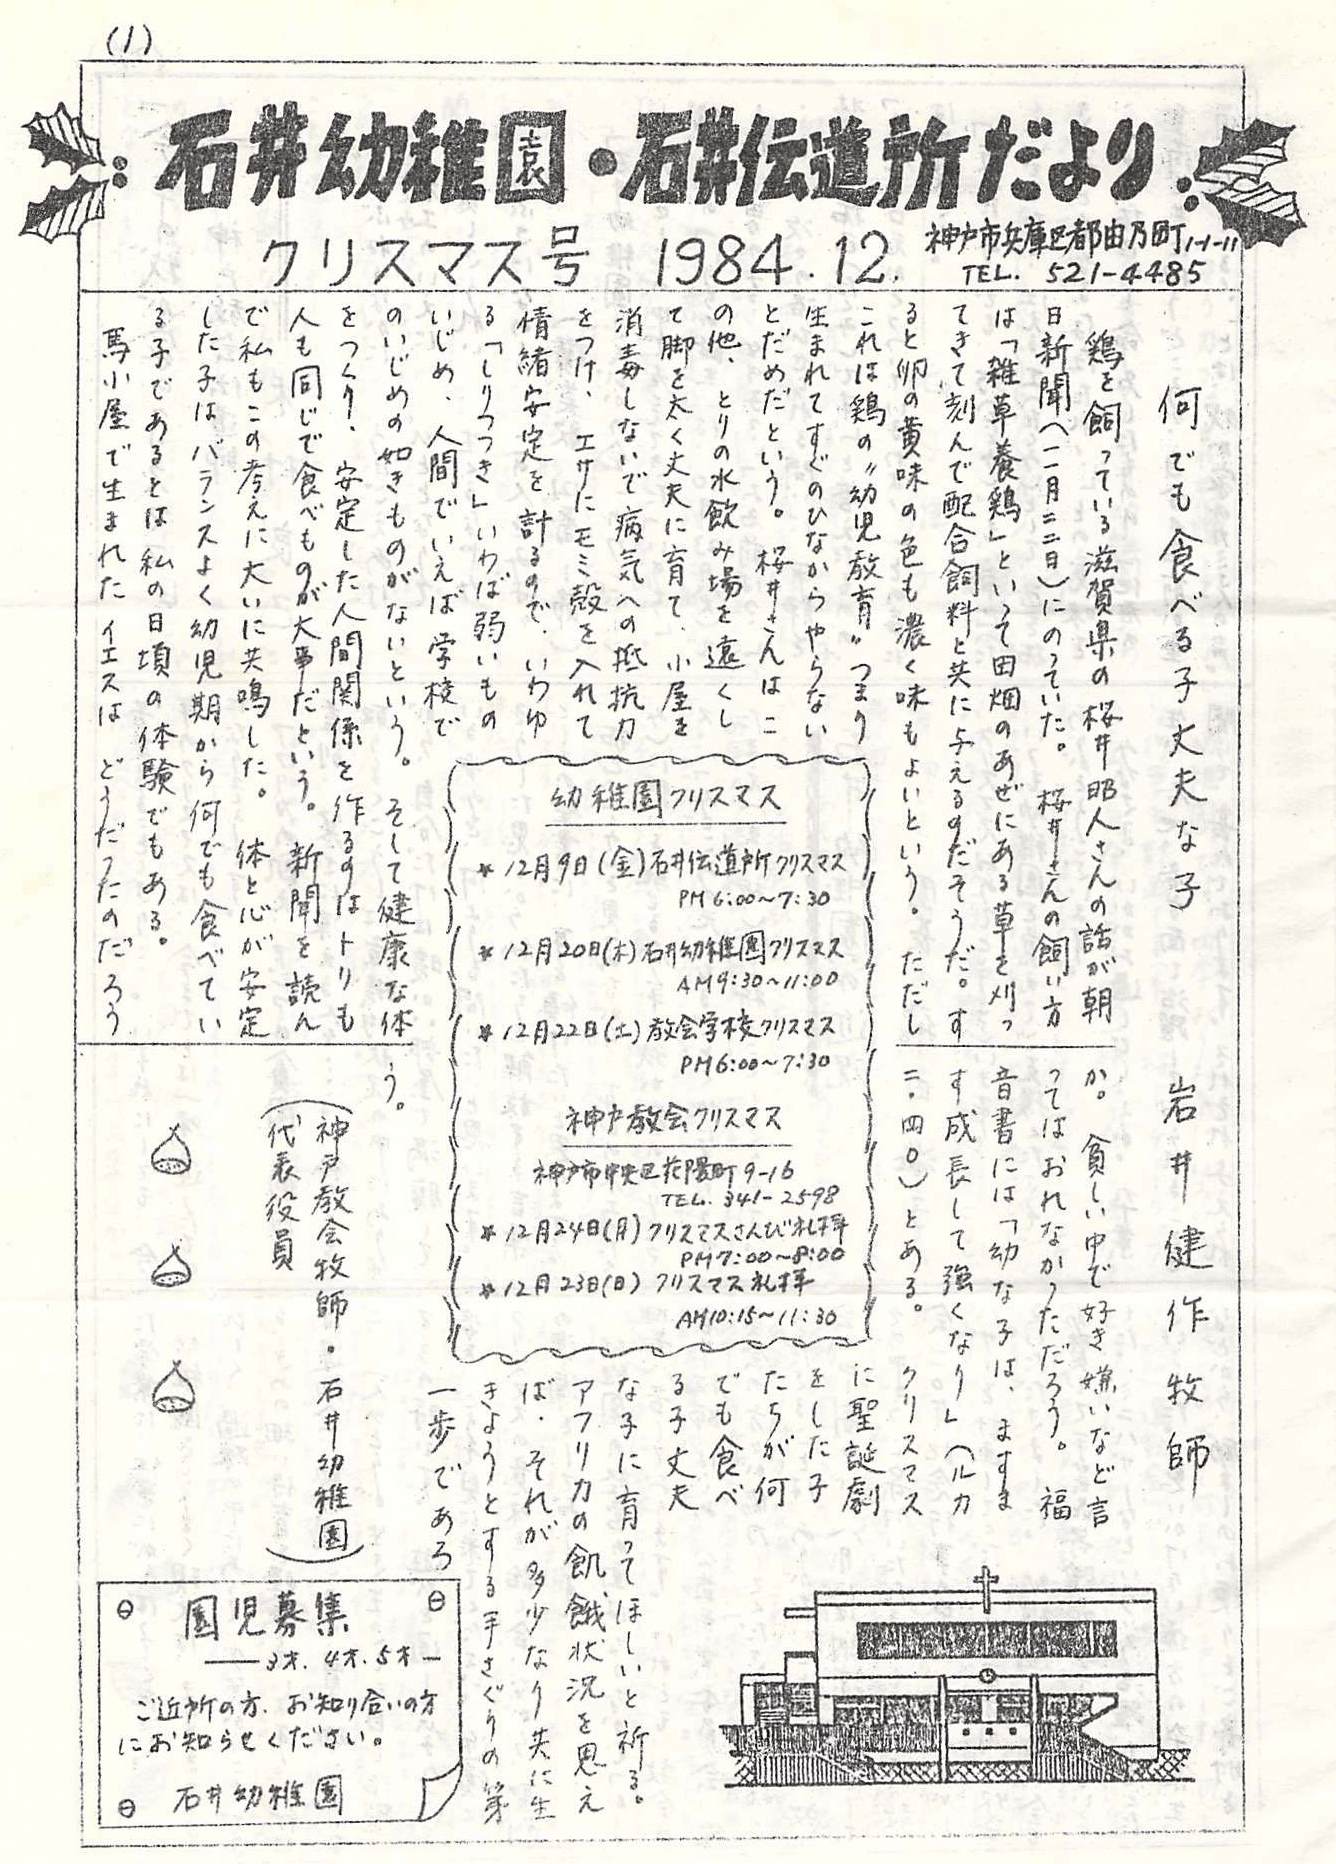 (1)
石井幼稚園・石井伝道所だより
クリスマス号 1984.12.
神戸市兵庫区都由乃町1-1-11
TEL. 521-4485
何でも食べる子丈夫な子 岩井健作牧師
鶏を飼っている滋賀県の桜井昭人さんの話が朝
日新聞(一一月二二日)にのっていた。桜井さんの飼い方
は「雑草養鶏」といって田畑のあぜにある草を刈っ
てきて刻んで配合飼料と共に与えるのだそうだ。す
ると卵の黄味の色も濃く味もよいという。ただし
これは鶏の〝幼児教育〟つまり
生まれてすぐのひなからやらない
とだめだという。桜井さんはこ
の他、とりの水飲み場を遠くし
て脚を太く丈夫に育て、小屋を
消毒しないで病気への抵抗力
をつけ、エサにモミ殻を入れて
情緒安定を計るので、いわゆ
る「しりつつき」いわば弱いもの
いじめ、人間でいえば学校で
のいじめの如きものがないという。そして健康な体
をつくり、安定した人間関係を作るのはトリも
人も同じで食べものが大事だという。新聞を読ん
で私もこの考えに大いに共鳴した。体と心が安定
した子はバランスよく幼児期から何でも食べてい
る子であるとは私の日頃の体験でもある。
馬小屋で生まれたイエスはどうだったのだろう
か。貧しい中で好き嫌いなど言
ってはおれなかっただろう。福
音書には「幼な子は、ますま
す成長して強くなり」(ルカ
二・四〇)とある。
クリスマス
に聖誕劇
をした子
たちが何
でも食べ
る子丈夫
な子に育ってほしいと祈る。
アフリカの飢餓状況を思え
ば、それが多少なり共に生
きようとする手さぐりの第
一歩であろ
う。
(神戸教会牧師・石井幼稚園
代表役員)
幼稚園クリスマス
* 12月9日(金)石井伝道所クリスマス
PM 6:00〜7:30
* 12月20日(木)石井幼稚園クリスマス
AM 9:30〜11:00
* 12月22日(土)教会学校クリスマス
PM 6:00〜7:30
神戸教会クリスマス
神戸市中央区花隈町9-16
TEL. 341-2598
* 12月24日(月) クリスマスさんび礼拝
PM 7:00〜8:00
* 12月23日(日) クリスマス礼拝
AM 10:15〜11:30
園児募集
——3才.4才.5才—
ご近所の方、お知り合いの方
にお知らせください。
石井幼稚園